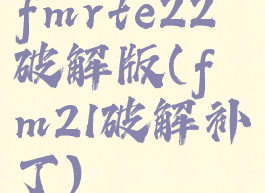 fmrte22
破解版(f
m21破解补
丁)